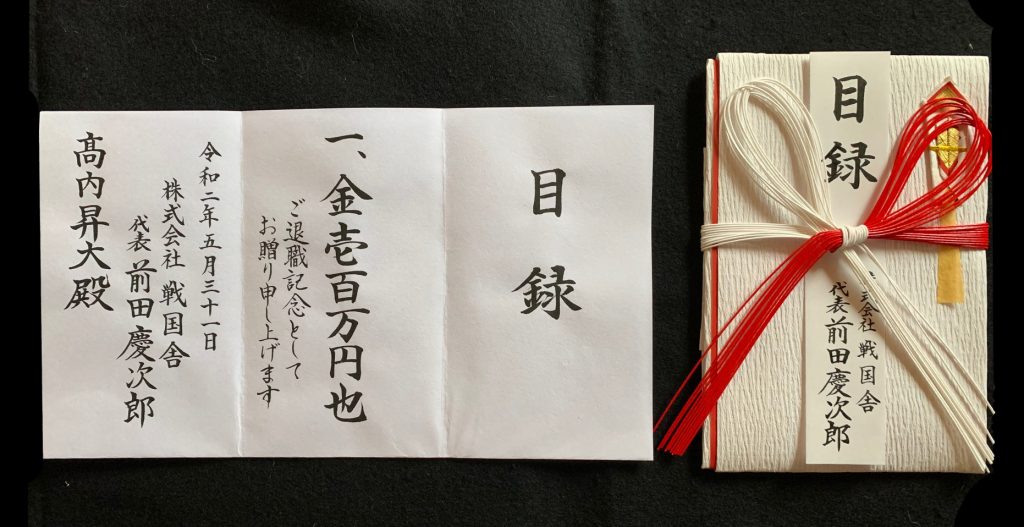 目録
一、金壱百万円也
ご退職記念として
お贈り申し上げます
令和二年五月三十一日
株式会社 戦国舎
代表 前田慶次郎
髙内昇大殿
目録
式会社 戦国舎
代表 前田慶次郎